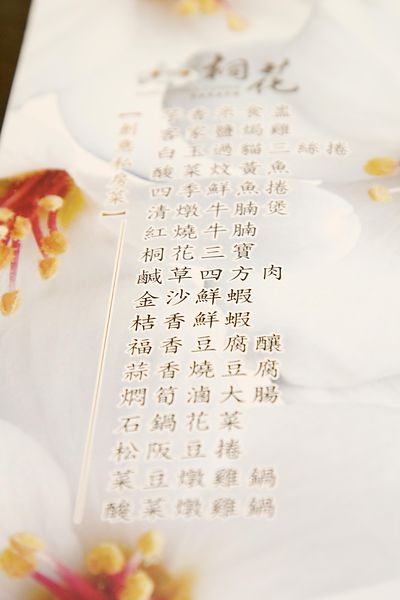 桐花
【創意私房菜】
客家鹽焗雞
白玉過貓三絲捲
酸菜炆黃魚
四季鮮魚捲
清燉牛腩煲
紅燒牛腩
桐花三寶
鹹草四方肉
金沙鮮蝦
桔香鮮蝦
福香豆腐釀
蒜香燒豆腐
燜筍滷大腸
石鍋花菜
松阪豆捲
菜豆燉雞鍋
酸菜燉雞鍋